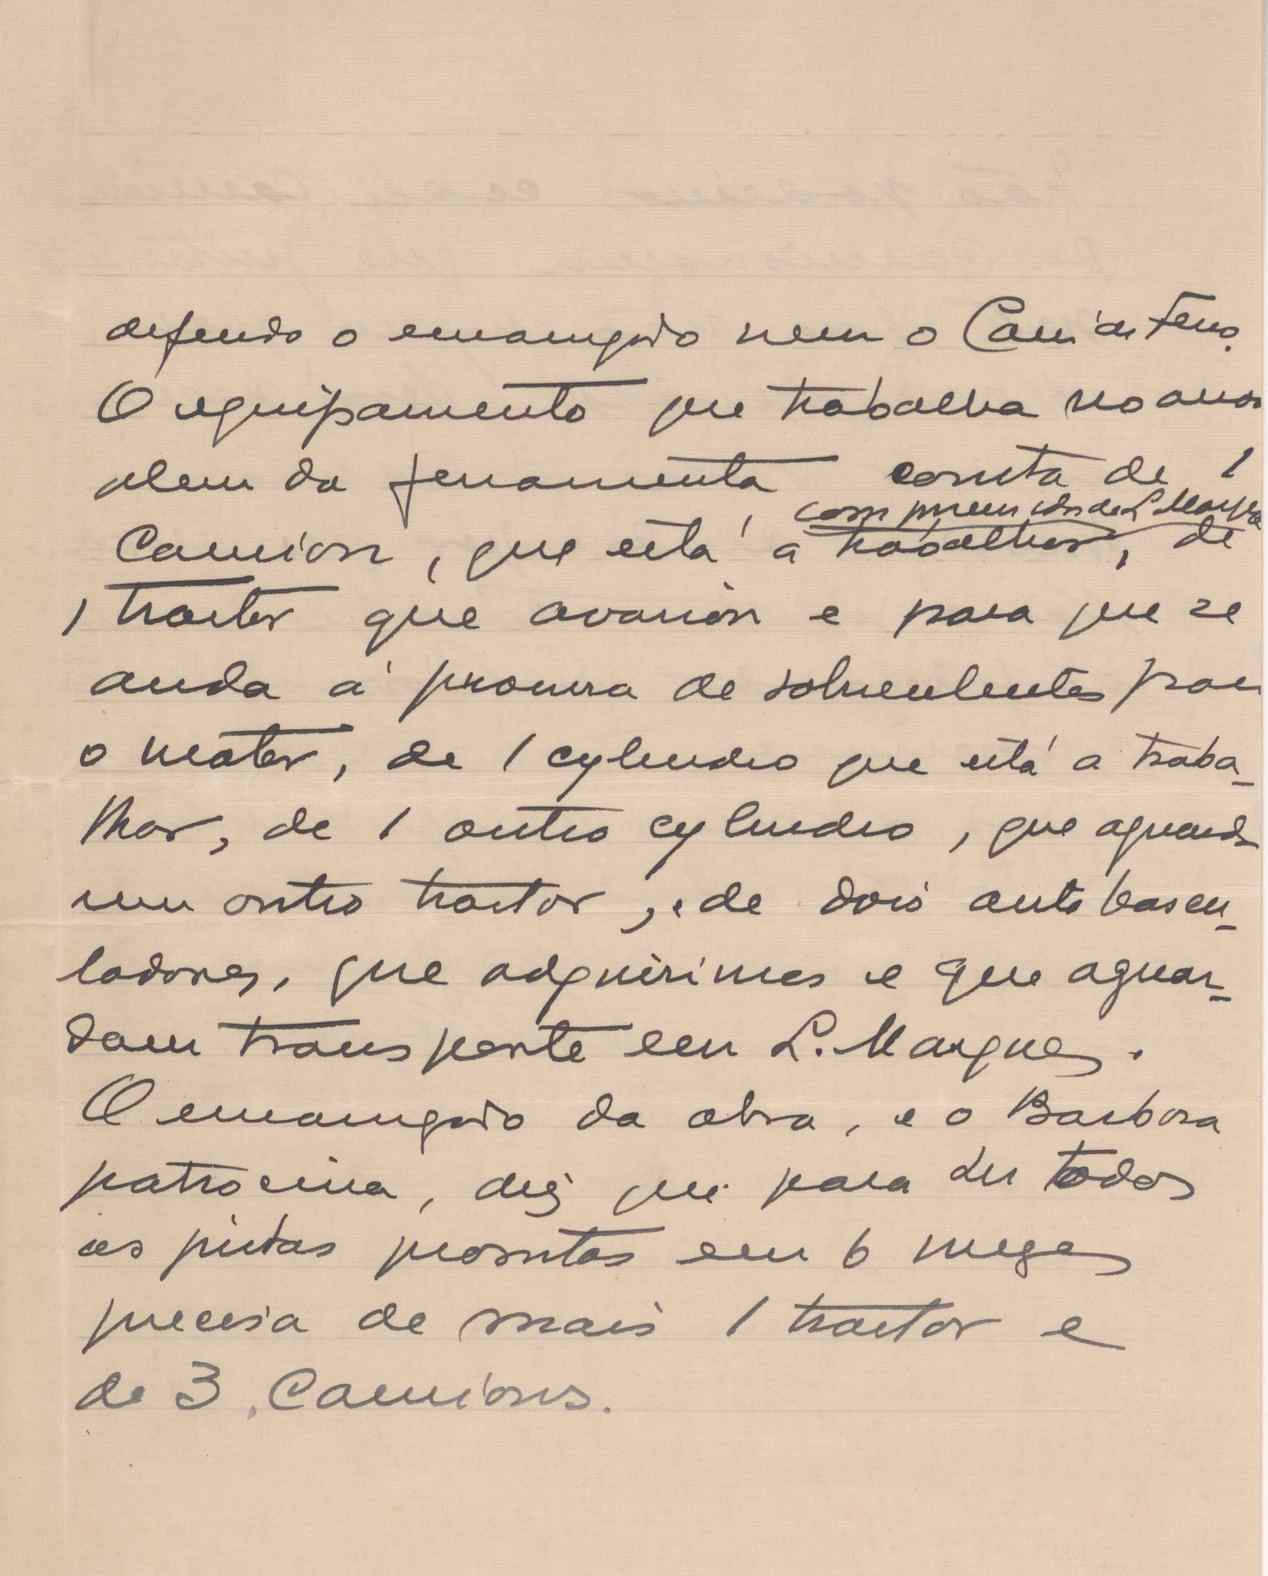 defendo o encarregado nem o Cam. de Ferro.
O equipamento que trabalha no
alem da ferramenta, consta de 1
com pneus idos de L. Marques
Camion, que está a trabalhar, de
1 tractor que avariou e para que se
anda á procura de sobrecelentes para
o motor, de 1 cylindro que está a traba-
lhar, de 1 outro cylindro, que aguarda
um outro tractor, e de dois auto bascu-
ladores, que adquirimos e que aguar-
dam transporte em L. Marques.
O encarregado da obra, e o Barbosa
patrocina, diz que para ter todas
as pistas prontas em 6 mezes
precisa de mais 1 tractor e
de 3 Camions.